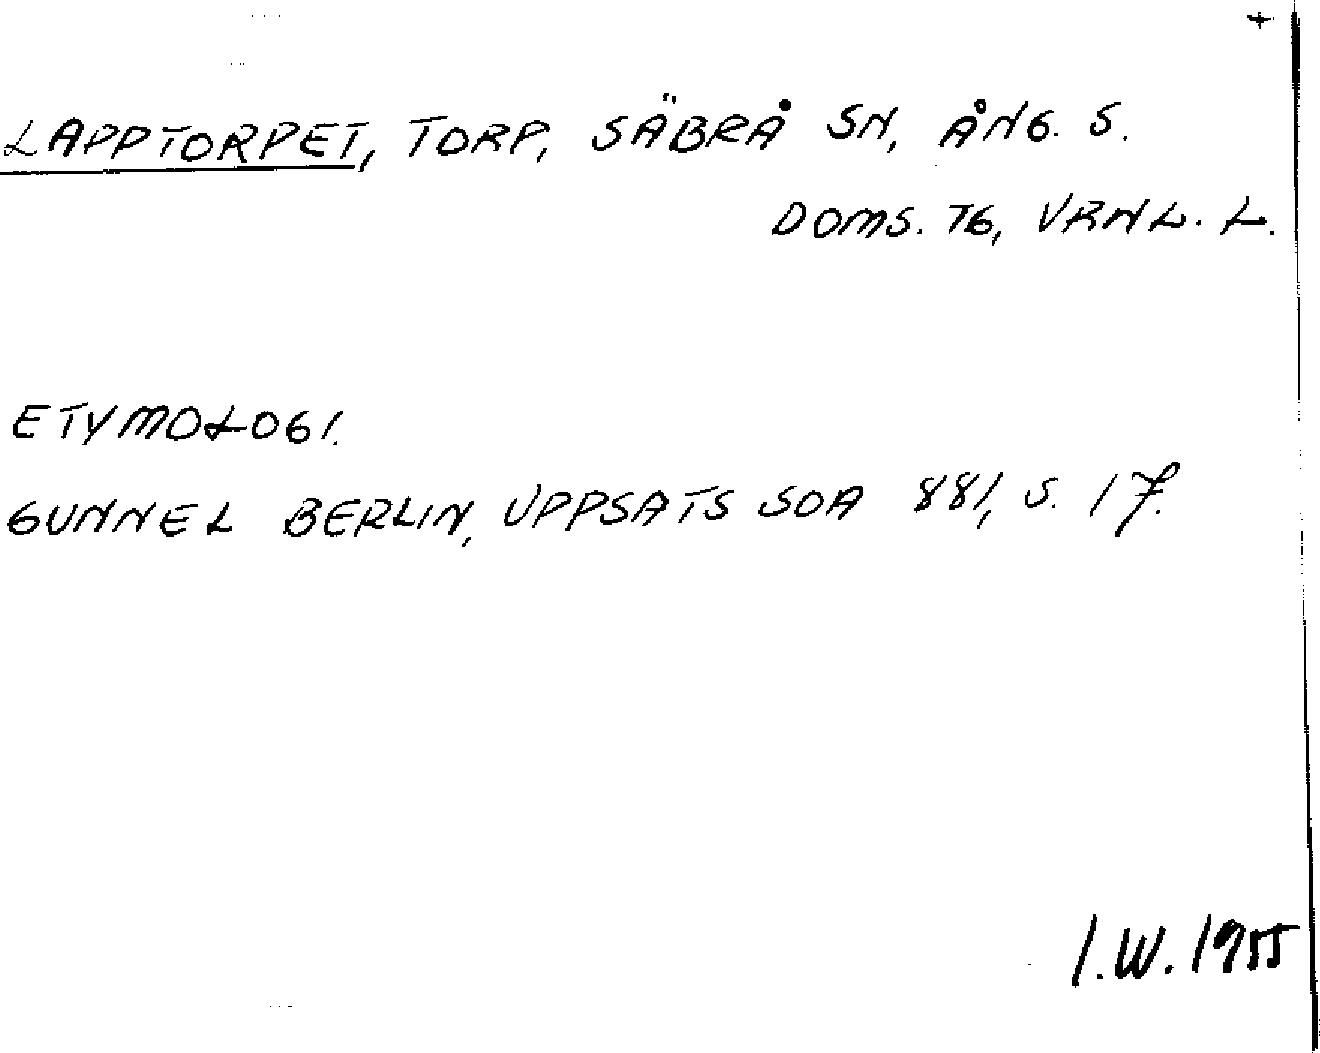 +
LAPPTORPET, TORP, SÄBRÅ SN, ÅNG. S.
DOMS. TG, VRNL. L.
ETYMOLOGI.
GUNNEL BERLIN, UPPSATS SOA 881, S. 17.
I.W. 1955